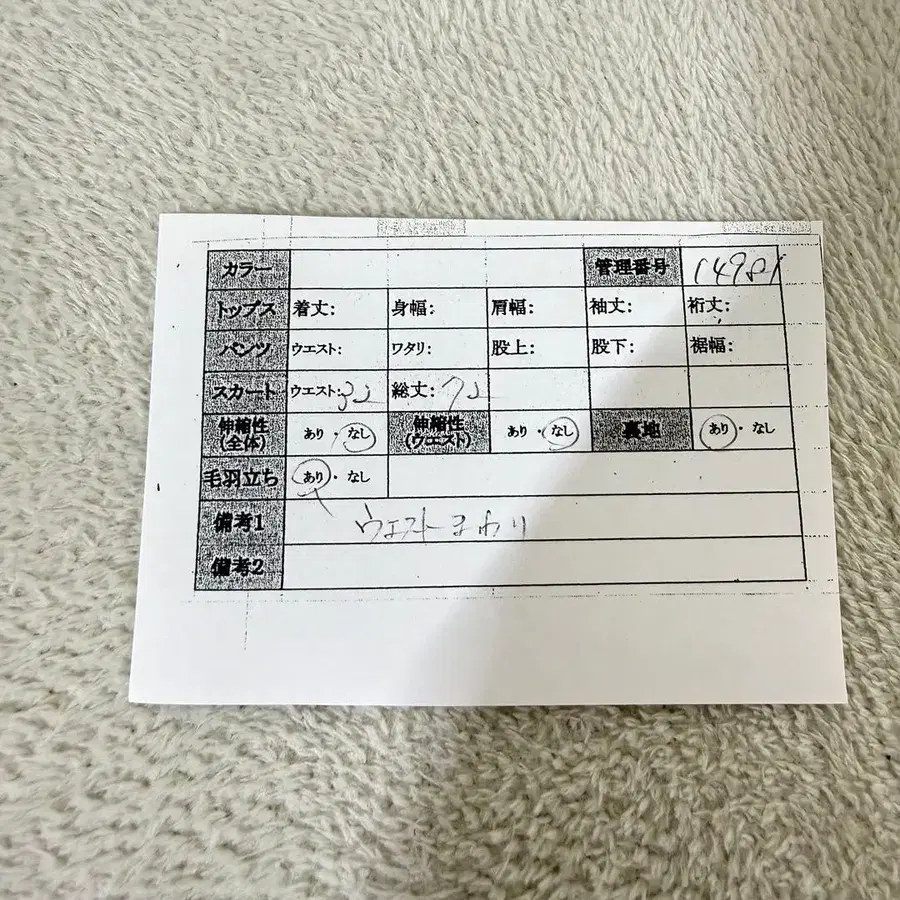 カラー 管理番号 14981
トップス 着丈: 身幅: 肩幅: 袖丈: 裄丈:
パンツ ウエスト: ワタリ: 股上: 股下: 裾幅:
スカート ウエスト: 32 総丈: 72
伸縮性(全体) あり・なし 伸縮性(ウエスト) あり・なし 裏地 あり・なし
毛羽立ち あり・なし
備考1 ウエストまわり
備考2